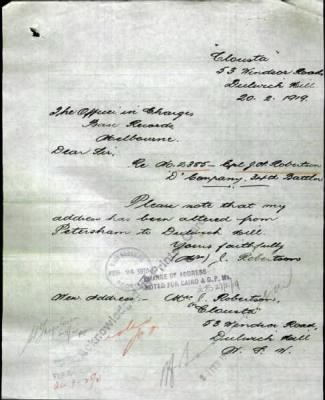 "Clousta"
53 Windsor Road
Dulwich Hill
20. 2. 1919.
The Officer in Charge
Base Records
Melbourne.
Dear Sir,
Re No. 2355 - Cpl J. H. Robertson
"D" Company, 34th Battln
Please note that my
address has been altered from
Petersham to Dulwich Hill.
Yours faithfully
(Mrs) J. Robertson
CHANGE OF ADDRESS
NOTED FOR CARD & D.P.
New Address:- Mrs J. Robertson,
"Clousta"
53 Windsor Road,
Dulwich Hill
N. S. W.